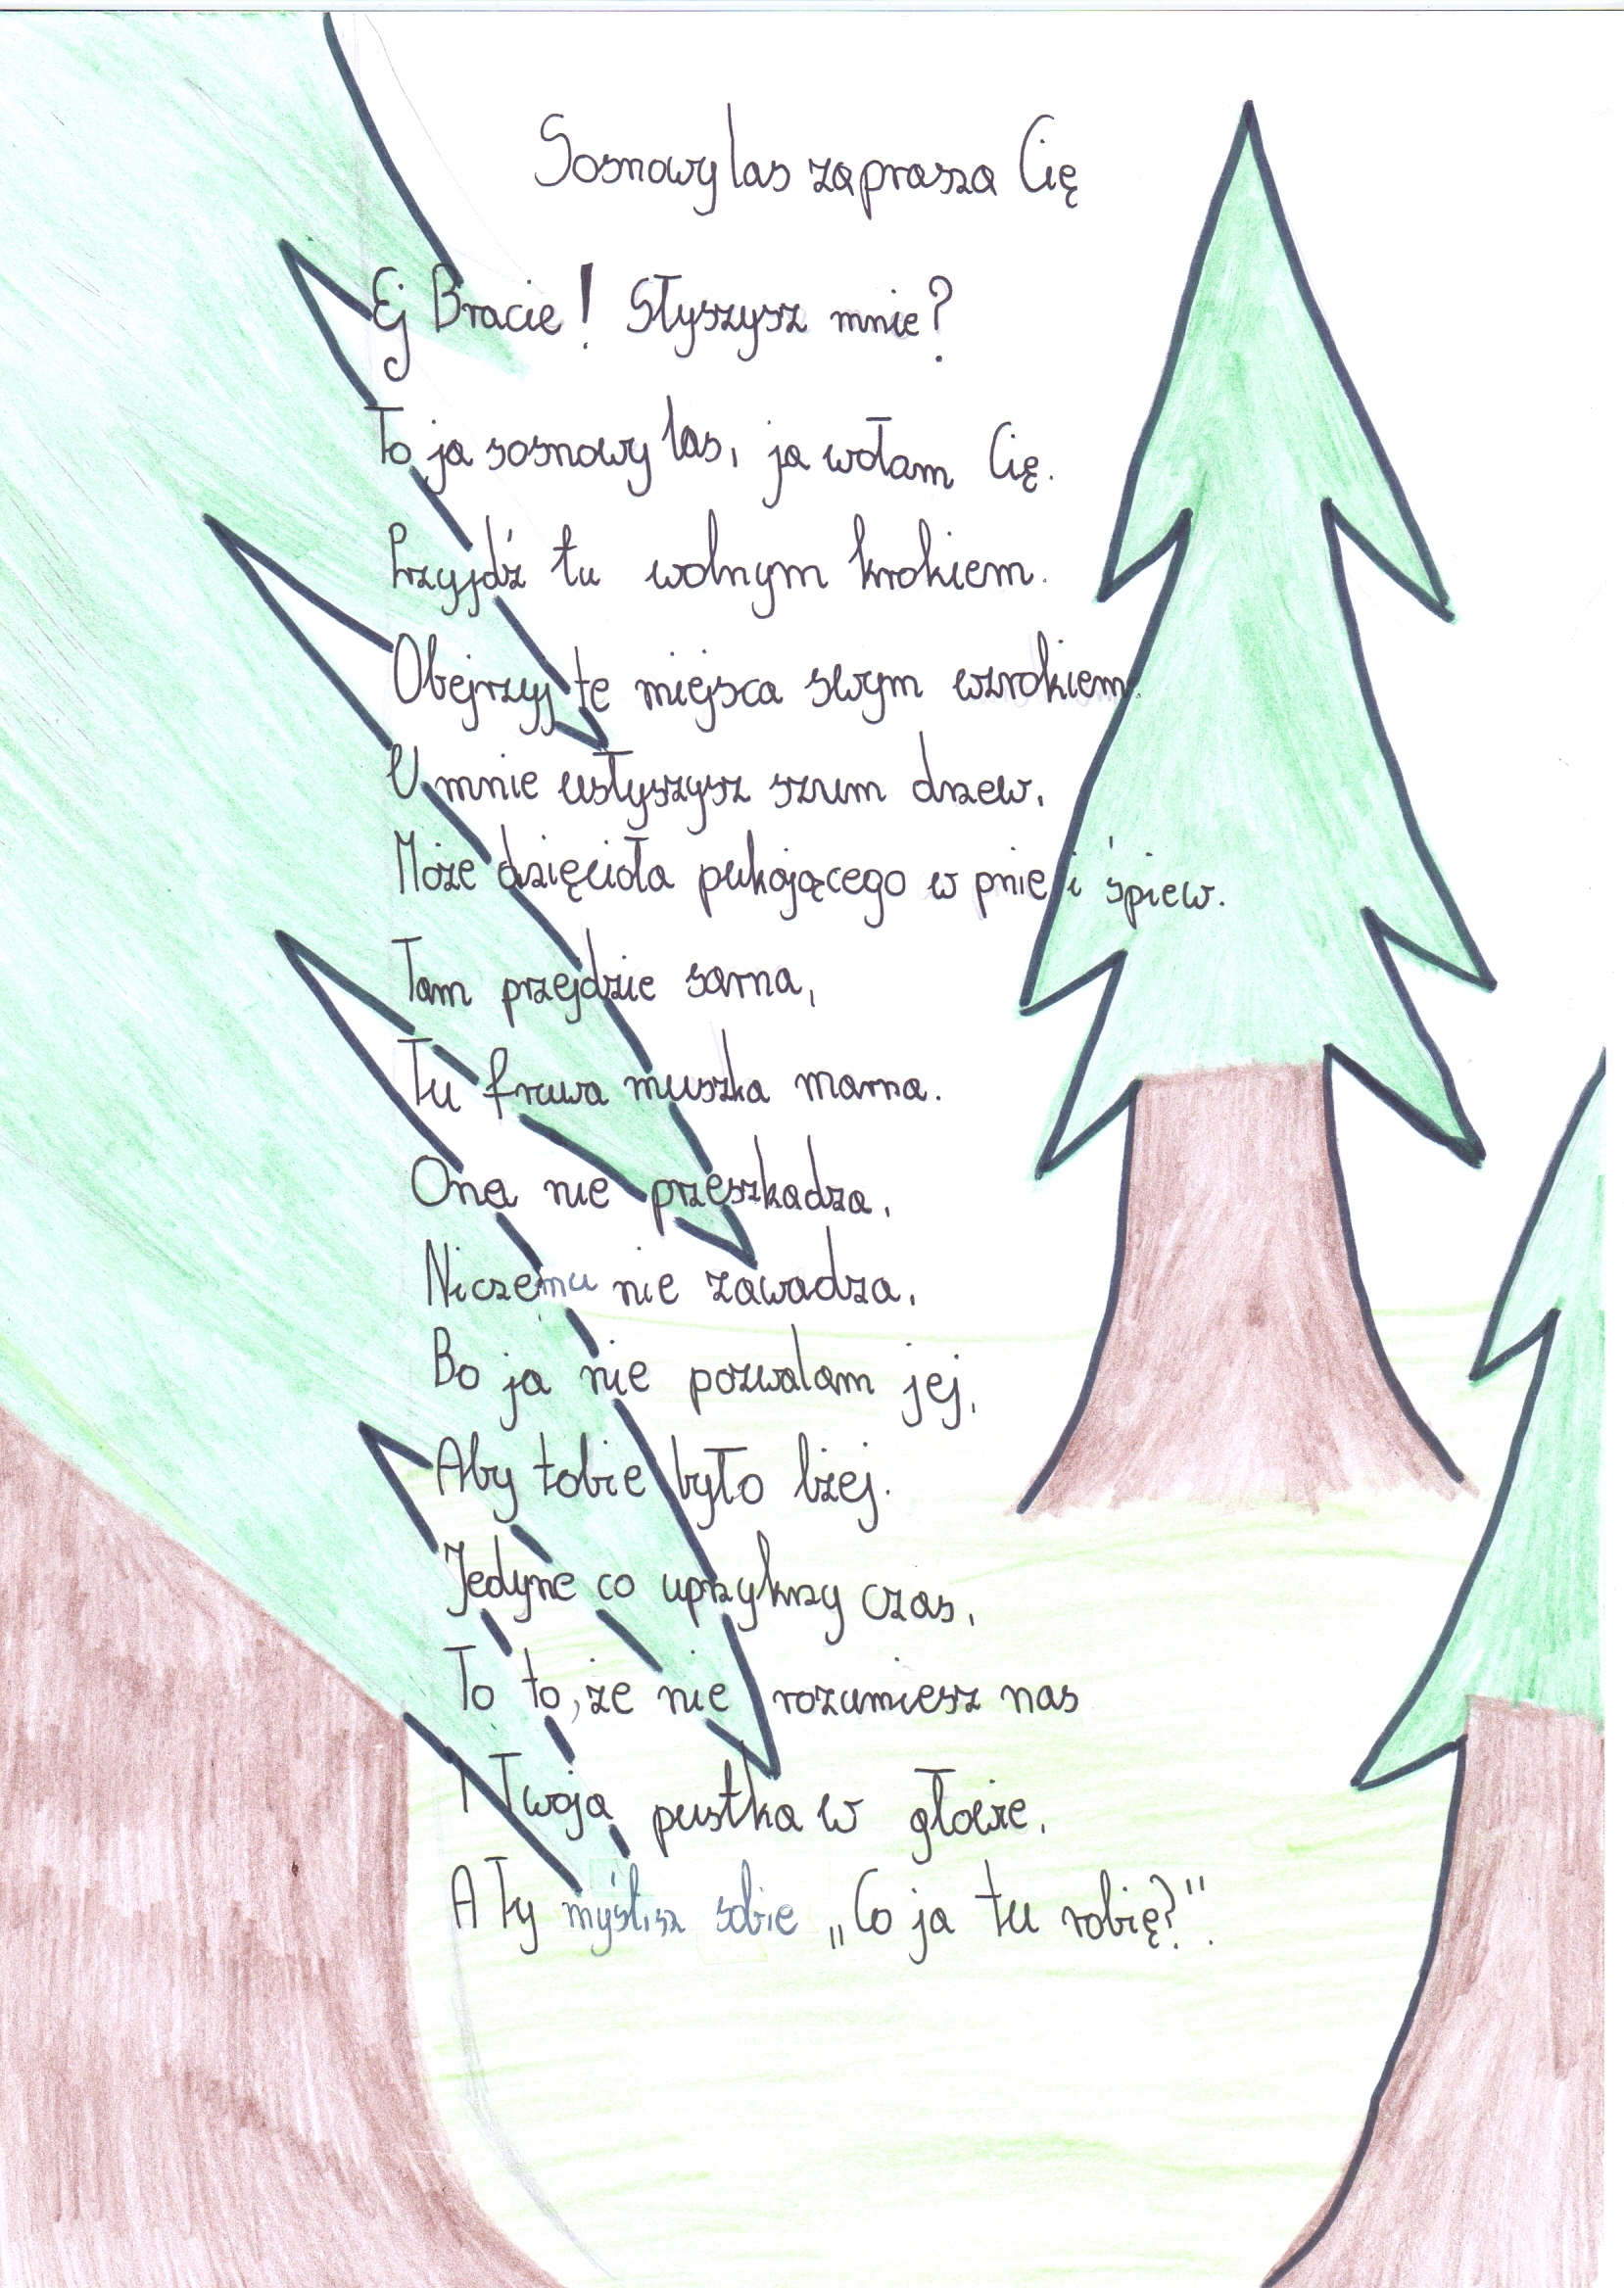 Sosnowy las zaprasza Cię
Ej Bracie! Słyszysz mnie?
To ja sosnowy las, ja wołam Cię.
Przyjdź tu wolnym krokiem.
Obejrzyj te miejsca swym wzrokiem.
U mnie usłyszysz szum drzew,
Może dzięcioła pukającego w pnie i śpiew.
Tam przejdzie sarna,
Tu fruwa muszka marna.
Ona nie przeszkadza,
Niczemu nie zawadza,
Bo ja nie pozwalam jej,
Aby tobie było lżej.
Jedyne co uprzykrzy czas,
To to, że nie rozumiesz nas
I Twoja pustka w głowie,
A Ty myślisz sobie „Co ja tu robię?".